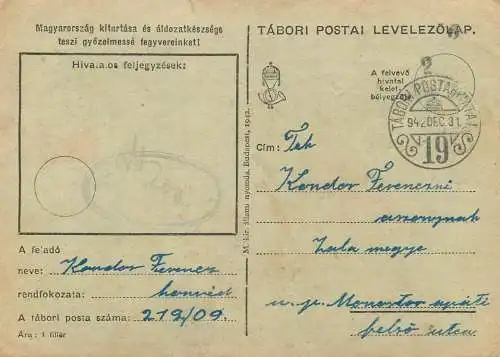 Magyarország kitartása és áldozatkészsége
teszi győzelmessé fegyvereinket!
Hivatalos feljegyzések:
A feladó
neve: Kondor Ferencz
rendfokozata: honvéd
A tábori posta száma: 219/09.
Ára: 1 fillér
M. kir. állami nyomda, Budapest, 1942.
TÁBORI POSTAI LEVELEZŐLAP.
A felvevő
hivatal
kelet-
bélyegzője
TÁBORI POSTAHIVATAL
942 DEC. 31.
19
Cím: Tek
Kondor Ferenczné
asszonynak
Zala megye
u.p. Monostor apáti
felső utca